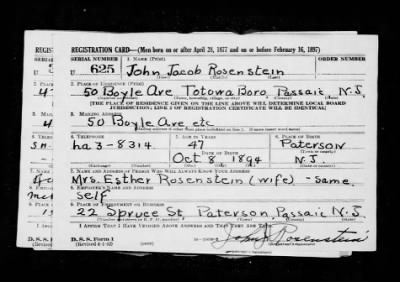 REGISTRATION CARD—(Men born on or after April 28, 1877 and on or before February 16, 1897)
SERIAL NUMBER 1. NAME (Print) ORDER NUMBER
U 625 John Jacob Rosenstein
(First) (Middle) (Last)
2. PLACE OF RESIDENCE (Print)
50 Boyle Ave Totowa Boro Passaic N.J.
[THE PLACE OF RESIDENCE GIVEN ON THE LINE ABOVE WILL DETERMINE LOCAL BOARD
JURISDICTION; LINE 2 OF REGISTRATION CERTIFICATE WILL BE IDENTICAL]
3. MAILING ADDRESS
50 Boyle Ave etc
4. TELEPHONE 5. AGE IN YEARS 6. PLACE OF BIRTH
ha 3-8314 47 Paterson
DATE OF BIRTH
Oct 8 1894 N.J.
7. NAME AND ADDRESS OF PERSON WHO WILL ALWAYS KNOW YOUR ADDRESS
Mrs. Esther Rosenstein (wife) - same
8. EMPLOYER'S NAME AND ADDRESS
Self
9. PLACE OF EMPLOYMENT OR BUSINESS
22 Spruce St Paterson, Passaic N.J.
I AFFIRM THAT I HAVE VERIFIED ABOVE ANSWERS AND THAT THEY ARE TRUE.
D. S. S. Form 1
John J Rosenstein